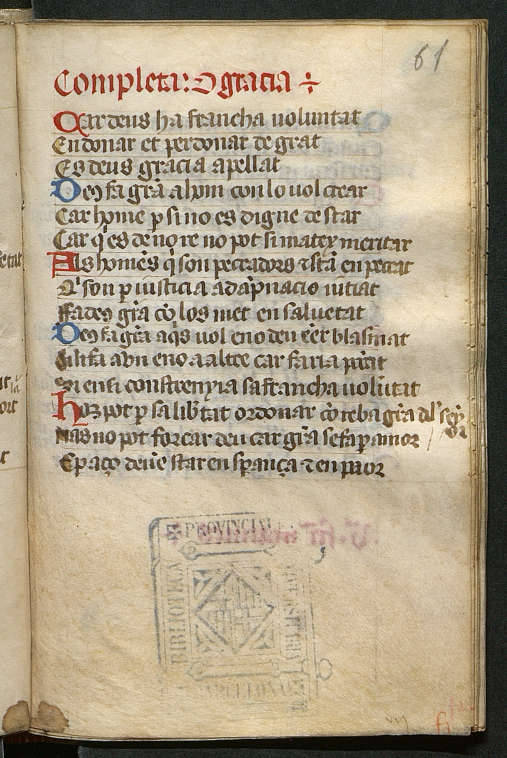 61
Completa: D gracia
Car deus ha francha uoluntat
En donar et perdonar de grat
Es deus gracia apellat
Deus fa grã a hom con lo uol crear
Car home p si no es digne de star
Car q es de no re no pot si matex meritar
Als homẽs q son peccadors ⁊ stã en peccat
Q son p iusticia a dãpnacio iutiat
Fa deus grã cõ los met en saluetat
Deus fa grã a qũs uol e no deu eẽr blasmat
Si li fa a un e no a altre car faria peccat
Si en si constrenyia sa francha uolũtat
Hoz pot p sa libtat ordonar cõ reba grã dl seyor
Mas no pot forçar deu car grã se fa p amor
E p aço deue star en spança ⁊ en paor
BIBLIOTECA
PROVINCIAL
BARCELONA